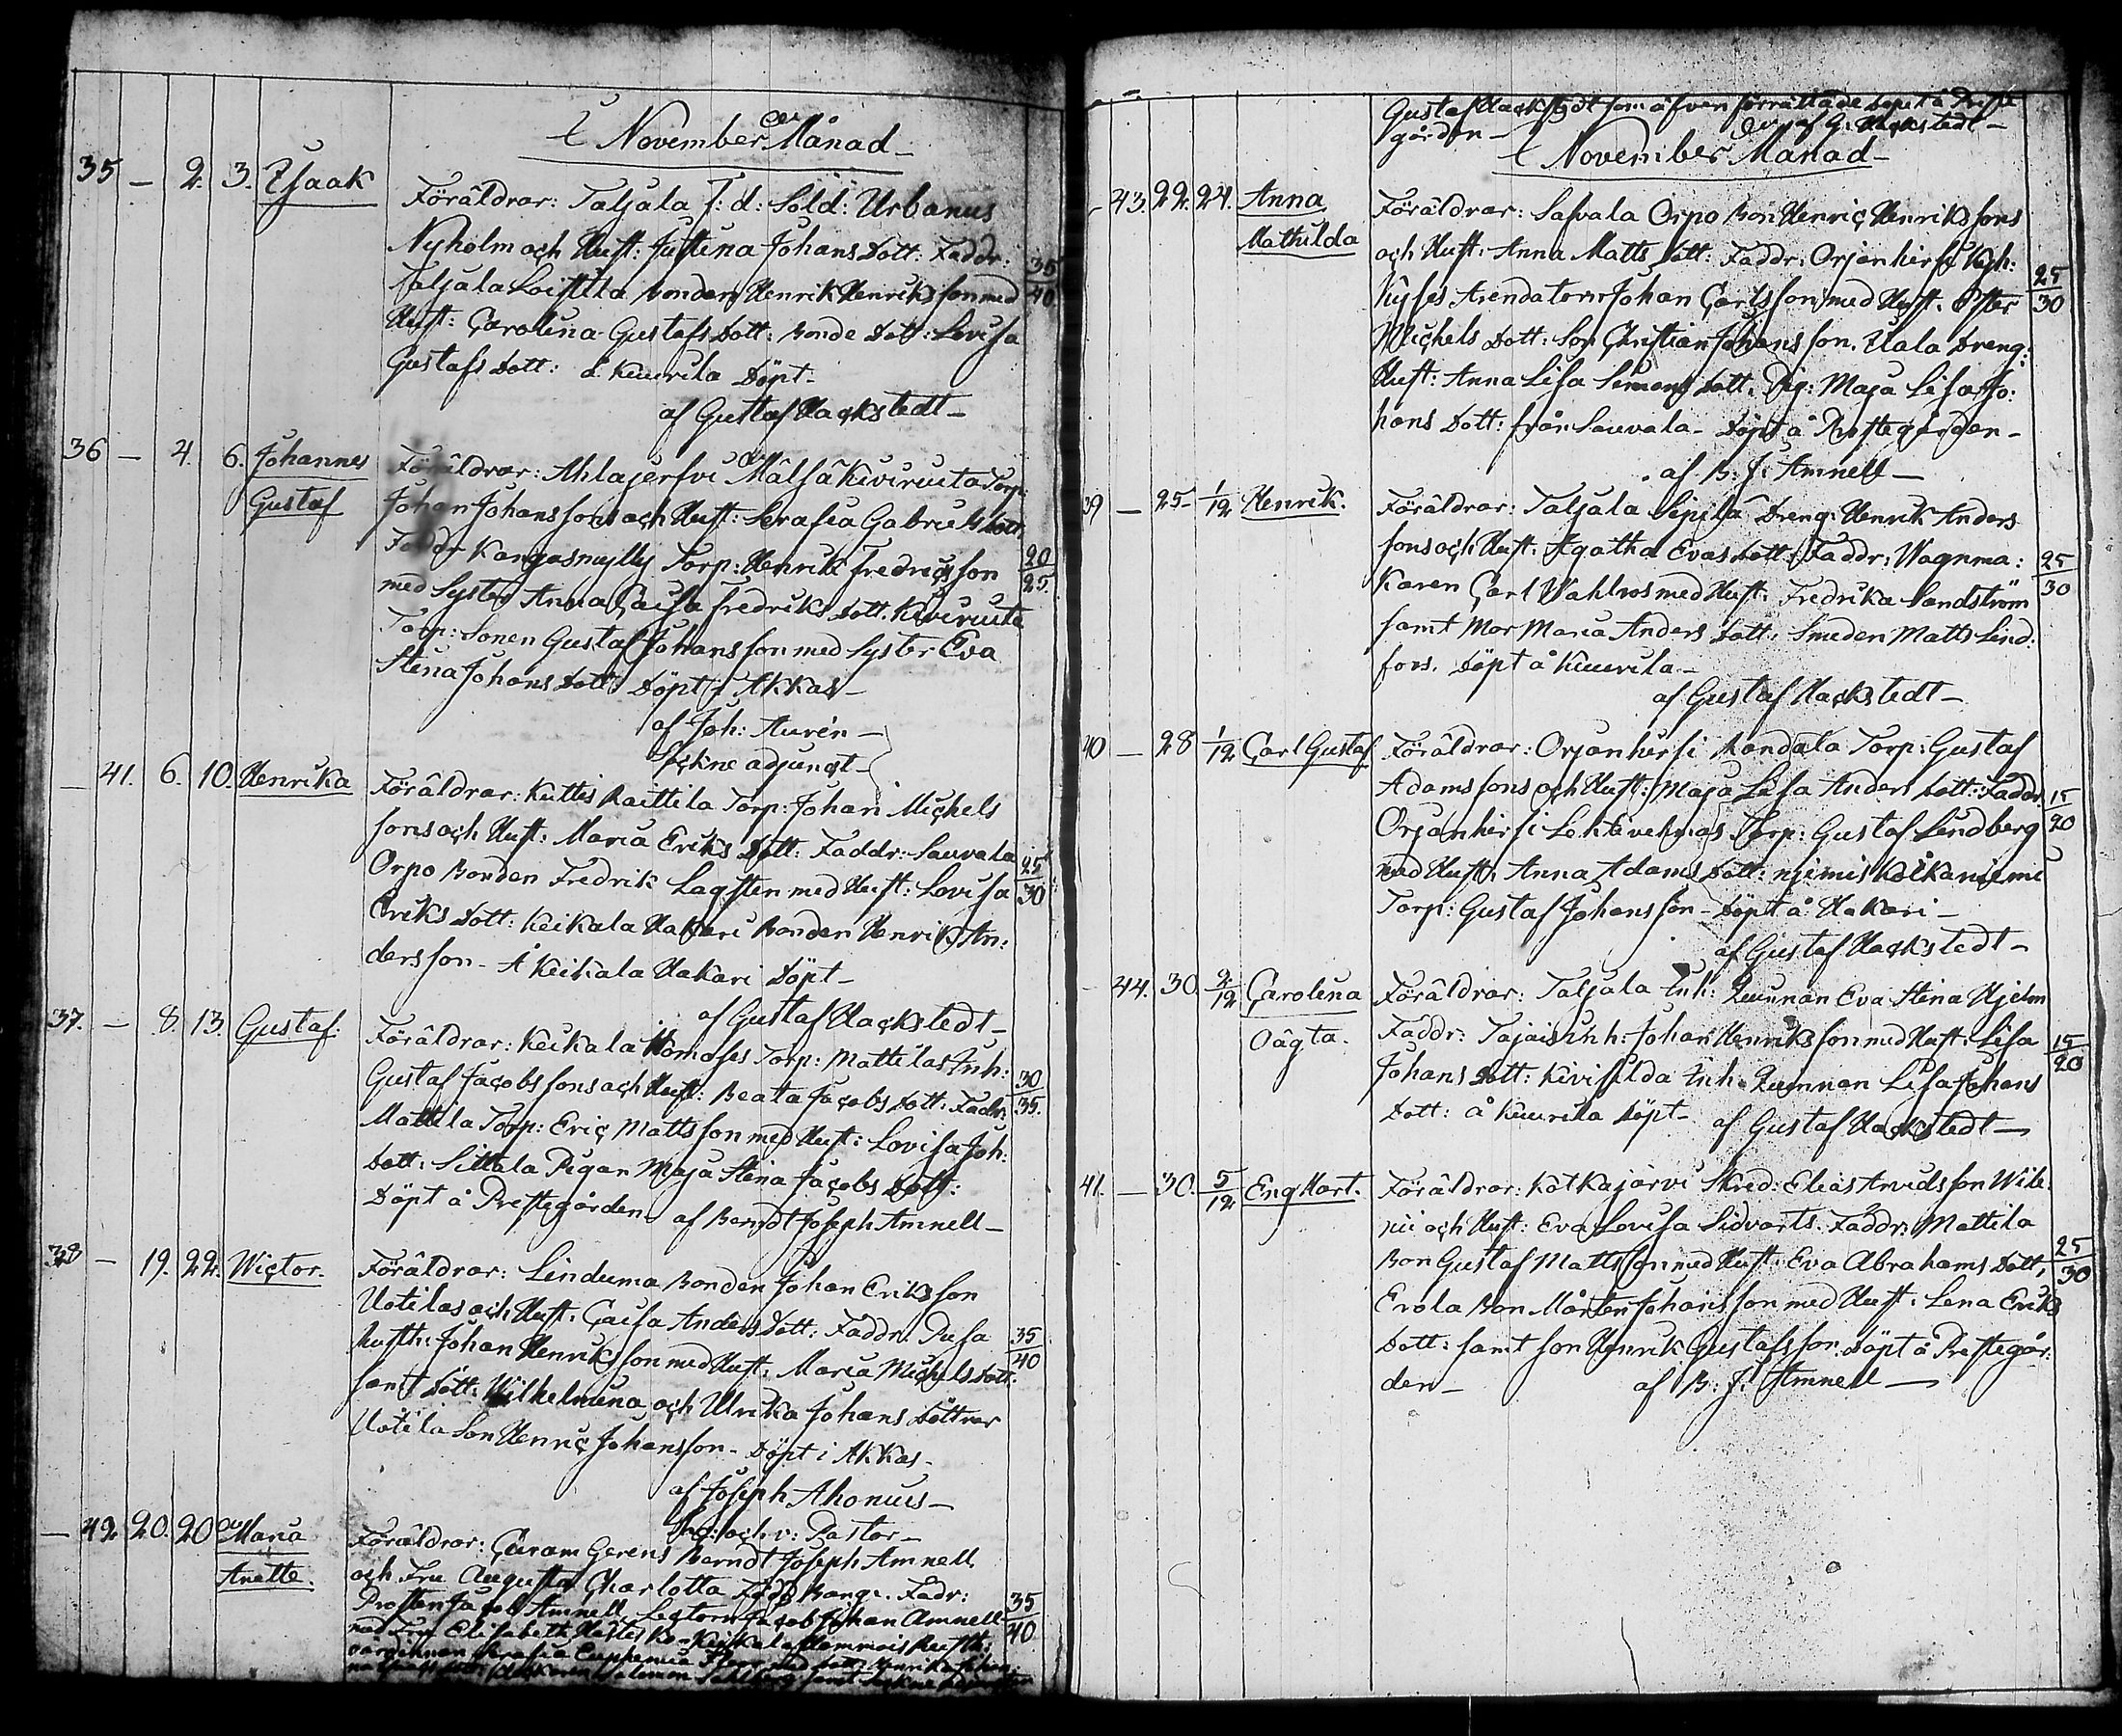 I November Månad
35 — 2. 3. Isaak Föräldrar: Taljala F: d: Sold: Urbanus
Nyholm och Hust: Justina Johans Dott: Faddr:
Taljala Loittila bonden Henrik Henriksson med 35/40
Hust: Carolina Gustafs Dott: Bonde Dott: Lovisa
Gustafs Dott: å Kuurila Döpt
af Gustaf Hackstedt
36 — 4. 6. Johannes Föräldrar: Ahlajerfvi Mälsä Kiviruuta Torp:
Gustaf Johan Johanssons och Hust: Serafia Gabriels Dott
Faddr Kangasmylly Torp: Henrik Fredricsson 20/25
med Syster Anna Caisa Fredriks Dott. Kiviruuta
Torp: Sonen Gustaf Johansson med Syster Eva
Stina Johans Dott Döpt i Akkas
af Joh: Aurén
Sockne adjunct
— 41. 6. 10. Henrika Föräldrar: Kuttis Raittila Torp: Johan Michels
sons och Hust. Maria Eriks Dott: Faddr: Sauvala
Orpo Bonden Fredrik Lagsten med Hust: Lovisa 25/30
Eriks Dott: Keikala Hakari Bonden Henrik An:
dersson - Å Keikala Hakari Döpt
af Gustaf Hackstedt
37. — 8. 13. Gustaf. Föräldrar: Keikala Torp: Mattilas Inh:
Gustaf Jacobssons och Hust: Beata Jacobs Dott: Fadr: 30/35.
Mattila Torp: Eric Mattsson med Hust: Lovisa Joh:
Dott: Sittala Pigan Maja Stina Jacobs Dott:
Döpt å Prestegården af Berndt Joseph Amnell
38 — 19. 22. Wictor. Föräldrar: Linduma Bonden Johan Eriksson
Uotilas och Hust. Caisa Anders Dott: Faddr:
Johan Henriksson med Hust. Maria Michels Dott. 35/40
samt Dött: Wilhelmina och Ulrika Johans Döttrar
Uotila Son Henric Johansson - Döpt i Akkas.
af Joseph Ahonius
och v: Pastor
— 42 20. 20 Maria Föräldrar: Curam Gerens Berndt Joseph Amnell
Anette. och Fru Augusta Charlotta född Bange. Fadr:
Prosten Jacob Amnell, Lectorn Jacob Johan Amnell 35/40
med Fru Elisabeth
Euphemia
Gustaf Hackstedt som äfven förrättade dopet å Preste
gården — af G: Hackstedt
I November Månad
43. 22. 24. Anna Föräldrar: Safvala Orpo Bon Henric Henrikssons
Mathilda och Hust: Anna Matts Dott: Faddr: Orjanhirsi
Arendatorn Johan Carlsson med Hust. Ester 25/30
Michels Dott: Son Christian Johansson. Uala Dreng:
Hust: Anna Lisa Simons Dott. Pig: Maja Lisa Jo:
hans Dott: från Sauvala - Döpt å Prestegården
af B: J: Amnell
39 — 25 1/12 Henrik. Föräldrar: Taljala Seppälä Dreng: Henrik Anders
sons och Hust: Agatha Evas Dott: Faddr: Wagnma: 25/30
karen Carl Wahlros med Hust: Fredrika Sandström
samt Mor Maria Anders Dott: Smeden Matts Lind:
fors. Döpt å Kuurila
af Gustaf Hackstedt
40 — 28 1/12 Carl Gustaf Föräldrar: Orjanhirsi Torp: Gustaf
Adamssons och Hust: Maja Lisa Anders Dott: Faddr 15/20
Orjanhirsi Torp: Gustaf Lindberg
med Hust: Anna Adams Dott:
Torp: Gustaf Johansson - Döpt å Hakari
af Gustaf Hackstedt
44. 30. 2/12 Carolina Föräldrar: Taljala Inh: Quinnan Eva Stina Hjelm
Oägta. Faddr: Inh: Johan Henriksson med Hust: Lisa 15/20
Johans Dott: Kivisilda Inh: Quinnan Lisa Johans
Dott: å Kuurila Döpt af Gustaf Hackstedt
41. — 30. 5/12 Engl Mart. Föräldrar: Kotkajärvi Skred: Elias Arvidsson Wile
nii och Hust: Eva Lovisa Sidvarts. Faddr: Mattila
Bon Gustaf Mattsson med Hust: Eva Abrahams Dott, 25/30
Erola Bon Mårten Johansson med Hust: Lena Eriks
Dott: samt Son Henrik Gustafsson. Döpt å Prestegår:
den af B: J: Amnell